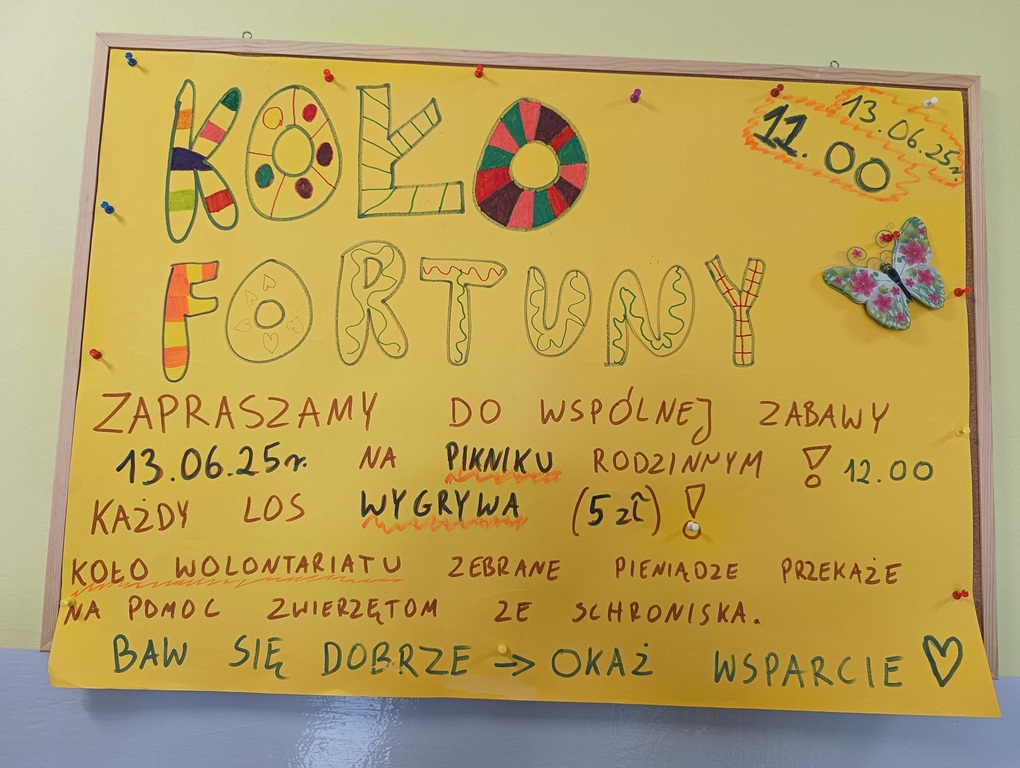 KOŁO
13.06.25r.
11.00
FORTUNY
ZAPRASZAMY DO WSPÓLNEJ ZABAWY
13.06.25r. NA PIKNIKU RODZINNYM ! 12.00
KAŻDY LOS WYGRYWA (5 zł) !
KOŁO WOLONTARIATU ZEBRANE PIENIĄDZE PRZEKAŻE
NA POMOC ZWIERZĘTOM ZE SCHRONISKA.
BAW SIĘ DOBRZE → OKAŻ WSPARCIE ♡